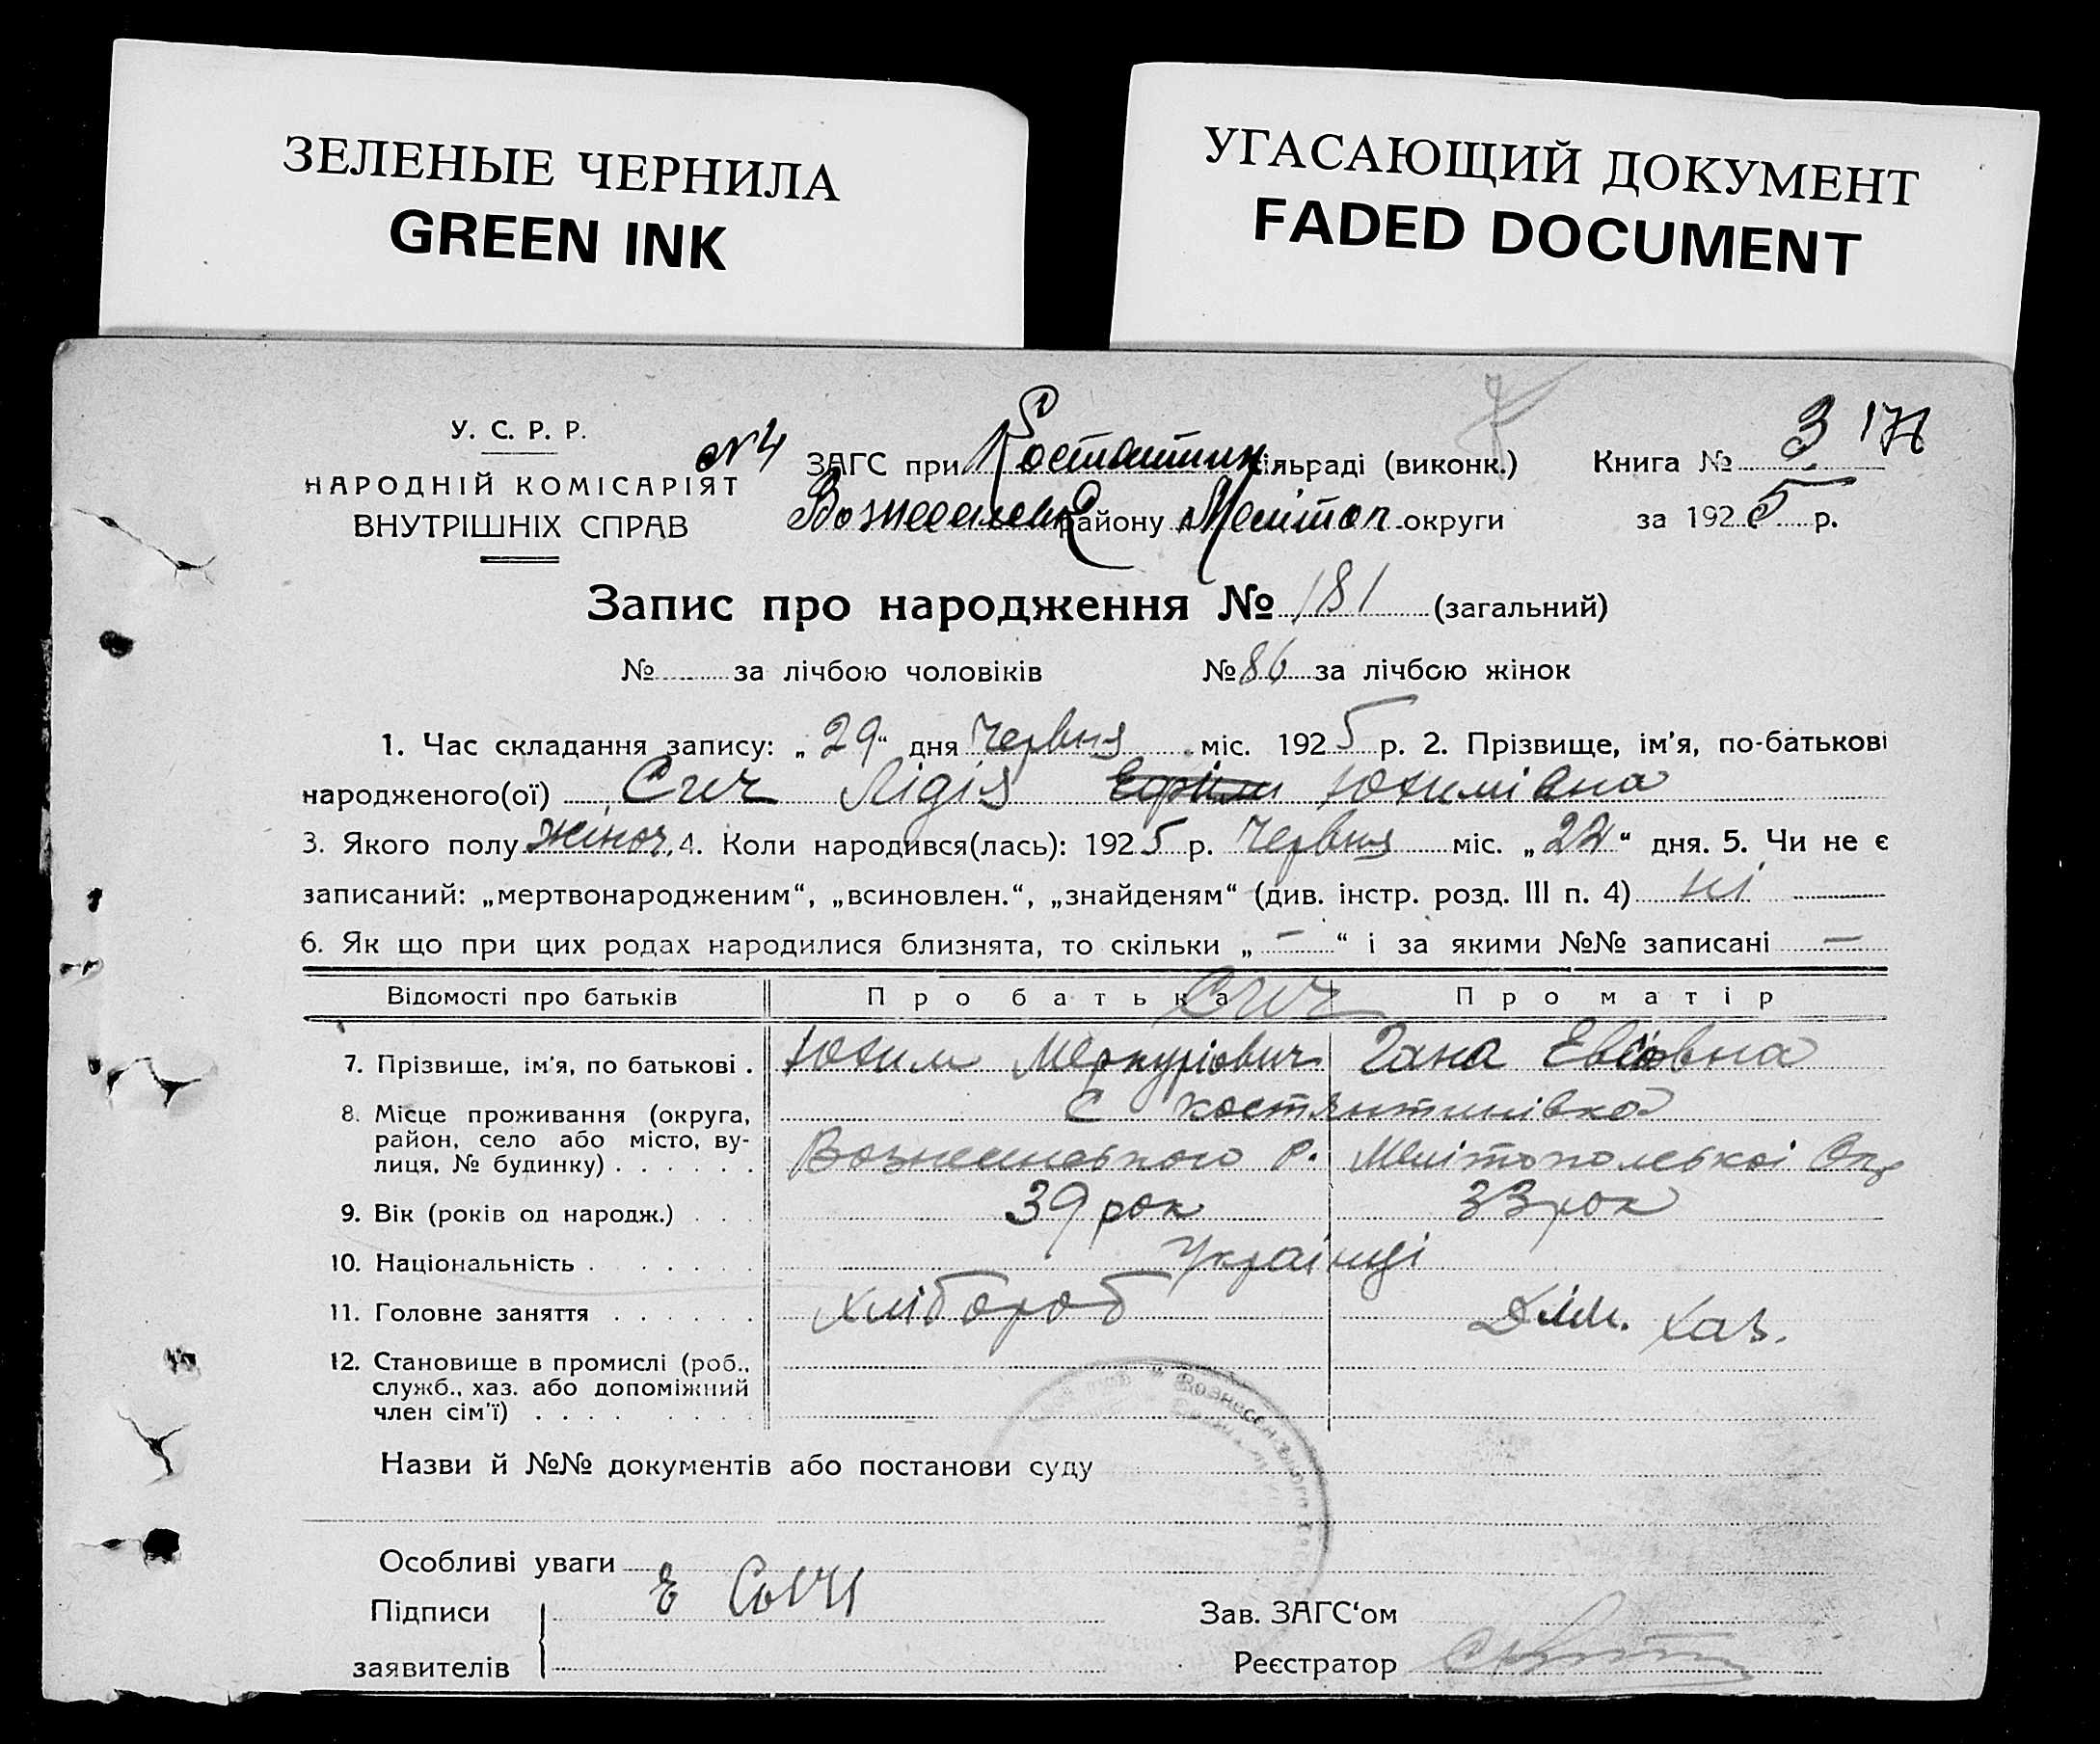 ЗЕЛЕНЫЕ ЧЕРНИЛА
GREEN INK
УГАСАЮЩИЙ ДОКУМЕНТ
FADED DOCUMENT
У. С. Р. Р.
НАРОДНІЙ КОМІСАРІЯТ
ВНУТРІШНІХ СПРАВ
№4 ЗАГС при Костянтин. сільраді (виконк.)
району Мелітоп округи
Книга № 3
за 1925 р.
Запис про народження № 181 (загальний)
№ за лічбою чоловіків № 86 за лічбою жінок
1. Час складання запису: „29“ дня Червня міс. 1925 р. 2. Прізвище, ім'я, по-батькові
народженого(ої) Сич Лідія Юхимівна
3. Якого полу жіноч. 4. Коли народився(лась): 1925 р. Червня міс. „22“ дня. 5. Чи не є
записаний: „мертвонародженим“, „всиновлен.“, „знайденям“ (див. інстр. розд. III п. 4) ні
6. Як що при цих родах народилися близнята, то скільки „ — “ і за якими №№ записані —
Відомості про батьків Про батька Про матір
Сич
7. Прізвище, ім'я, по батькові . Юхим Меркуріович Гана
8. Місце проживання (округа, с Костянтинівка
район, село або місто, ву-
лиця, № будинку) . . . . . . Р. Мелітопольскоі Окр
9. Вік (років од народж.) . . . 39 рок 33 рок
10. Національність . . . . . . . Українці
11. Головне заняття . . . . . . Хлібороб Дом. хаз.
12. Становище в промислі (роб.,
служб., хаз. або допоміжний
член сім'ї) . . . . . . . .
Назви й №№ документів або постанови суду
Особливі уваги
Підписи Е Сыч
заявителів
Зав. ЗАГС‘ом
Реєстратор